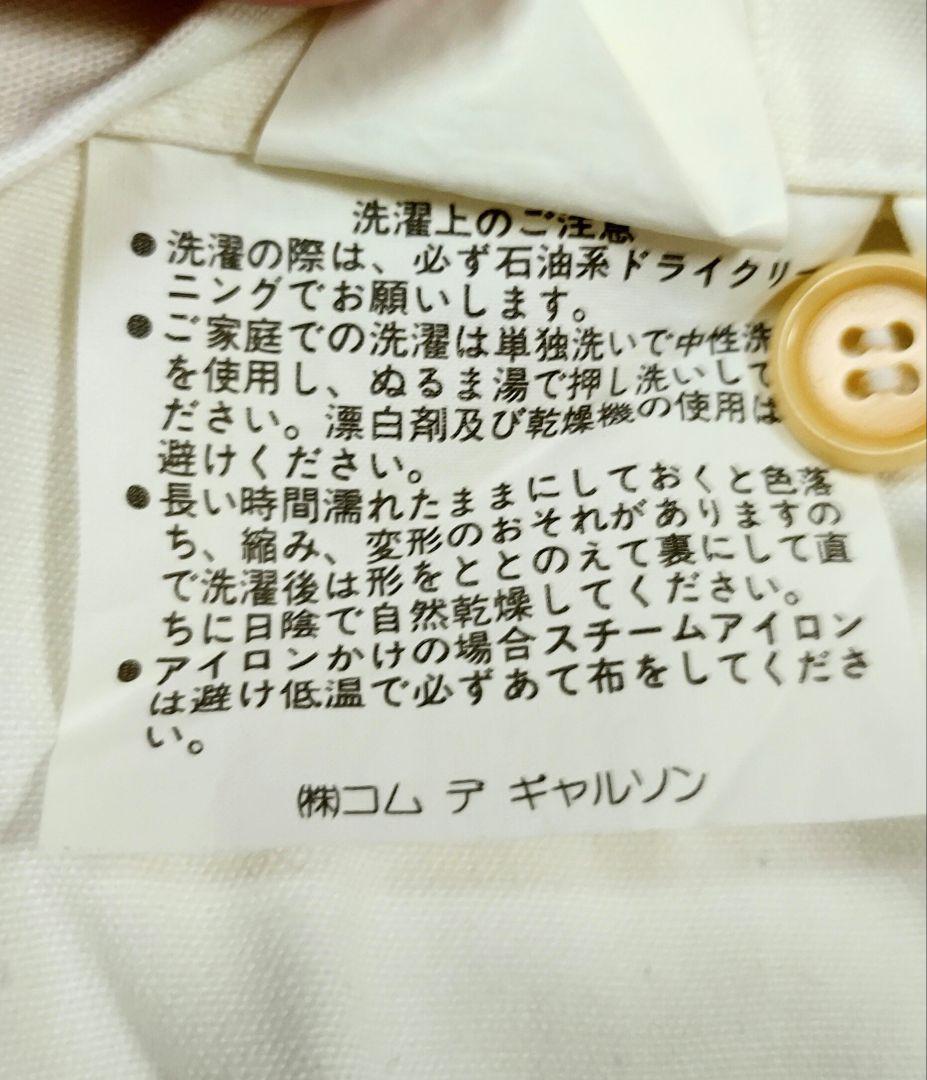 洗濯上のご注意
●洗濯の際は、必ず石油系ドライクリー
ニングでお願いします。
●ご家庭での洗濯は単独洗いで中性洗
を使用し、ぬるま湯で押し洗いして
ださい。漂白剤及び乾燥機の使用は
避けください。
●長い時間濡れたままにしておくと色落
ち、縮み、変形のおそれがありますの
で洗濯後は形をととのえて裏にして直
ちに日陰で自然乾燥してください。
●アイロンかけの場合スチームアイロン
は避け低温で必ずあて布をしてくださ
い。
㈱コム デ ギャルソン